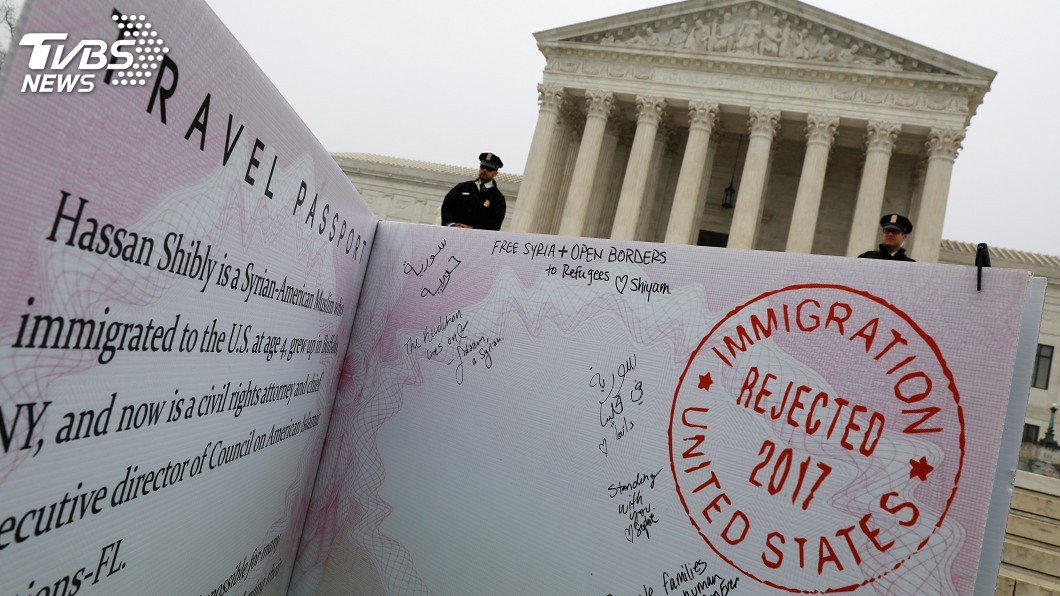 TVBS
NEWS
TRAVEL PASSPORT
Hassan Shibly is a Syrian-American Muslim who
immigrated to the U.S. at age 4, grew up in Buffalo,
NY, and now is a civil rights attorney and chief
executive director of Council on American Islamic
ions-FL.
possible for many
سورية
حرية
FREE SYRIA + OPEN BORDERS
to Refugees ♡ Shiyam
The Revolution
lives on!
a Syrian
سورية
Standing
with
you.
♡ Sophie
families
human
Ever
IMMIGRATION
REJECTED
2017
UNITED STATES